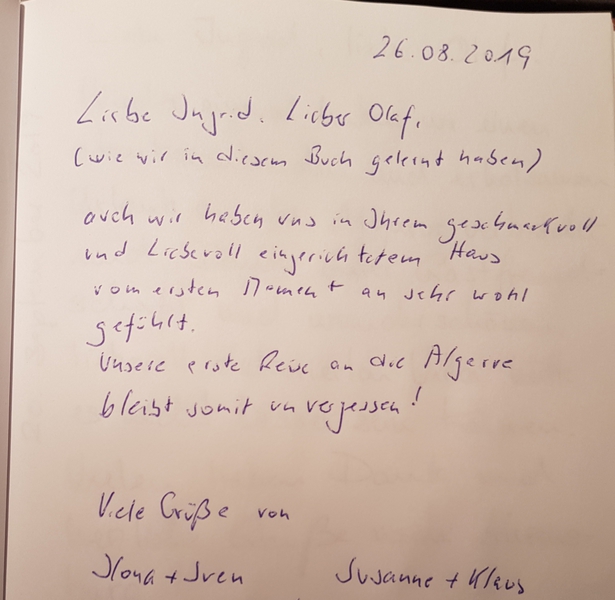 26.08.2019
Liebe Ingrid. Lieber Olaf,
(wie wir in diesem Buch gelernt haben)
auch wir haben uns in Ihrem geschmackvoll
und Liebevoll eingerichtetem Haus
vom ersten Moment an sehr wohl
gefühlt.
Unsere erste Reise an die Algarve
bleibt somit unvergessen!
Viele Grüße von
Ilona + Sven Susanne + Klaus